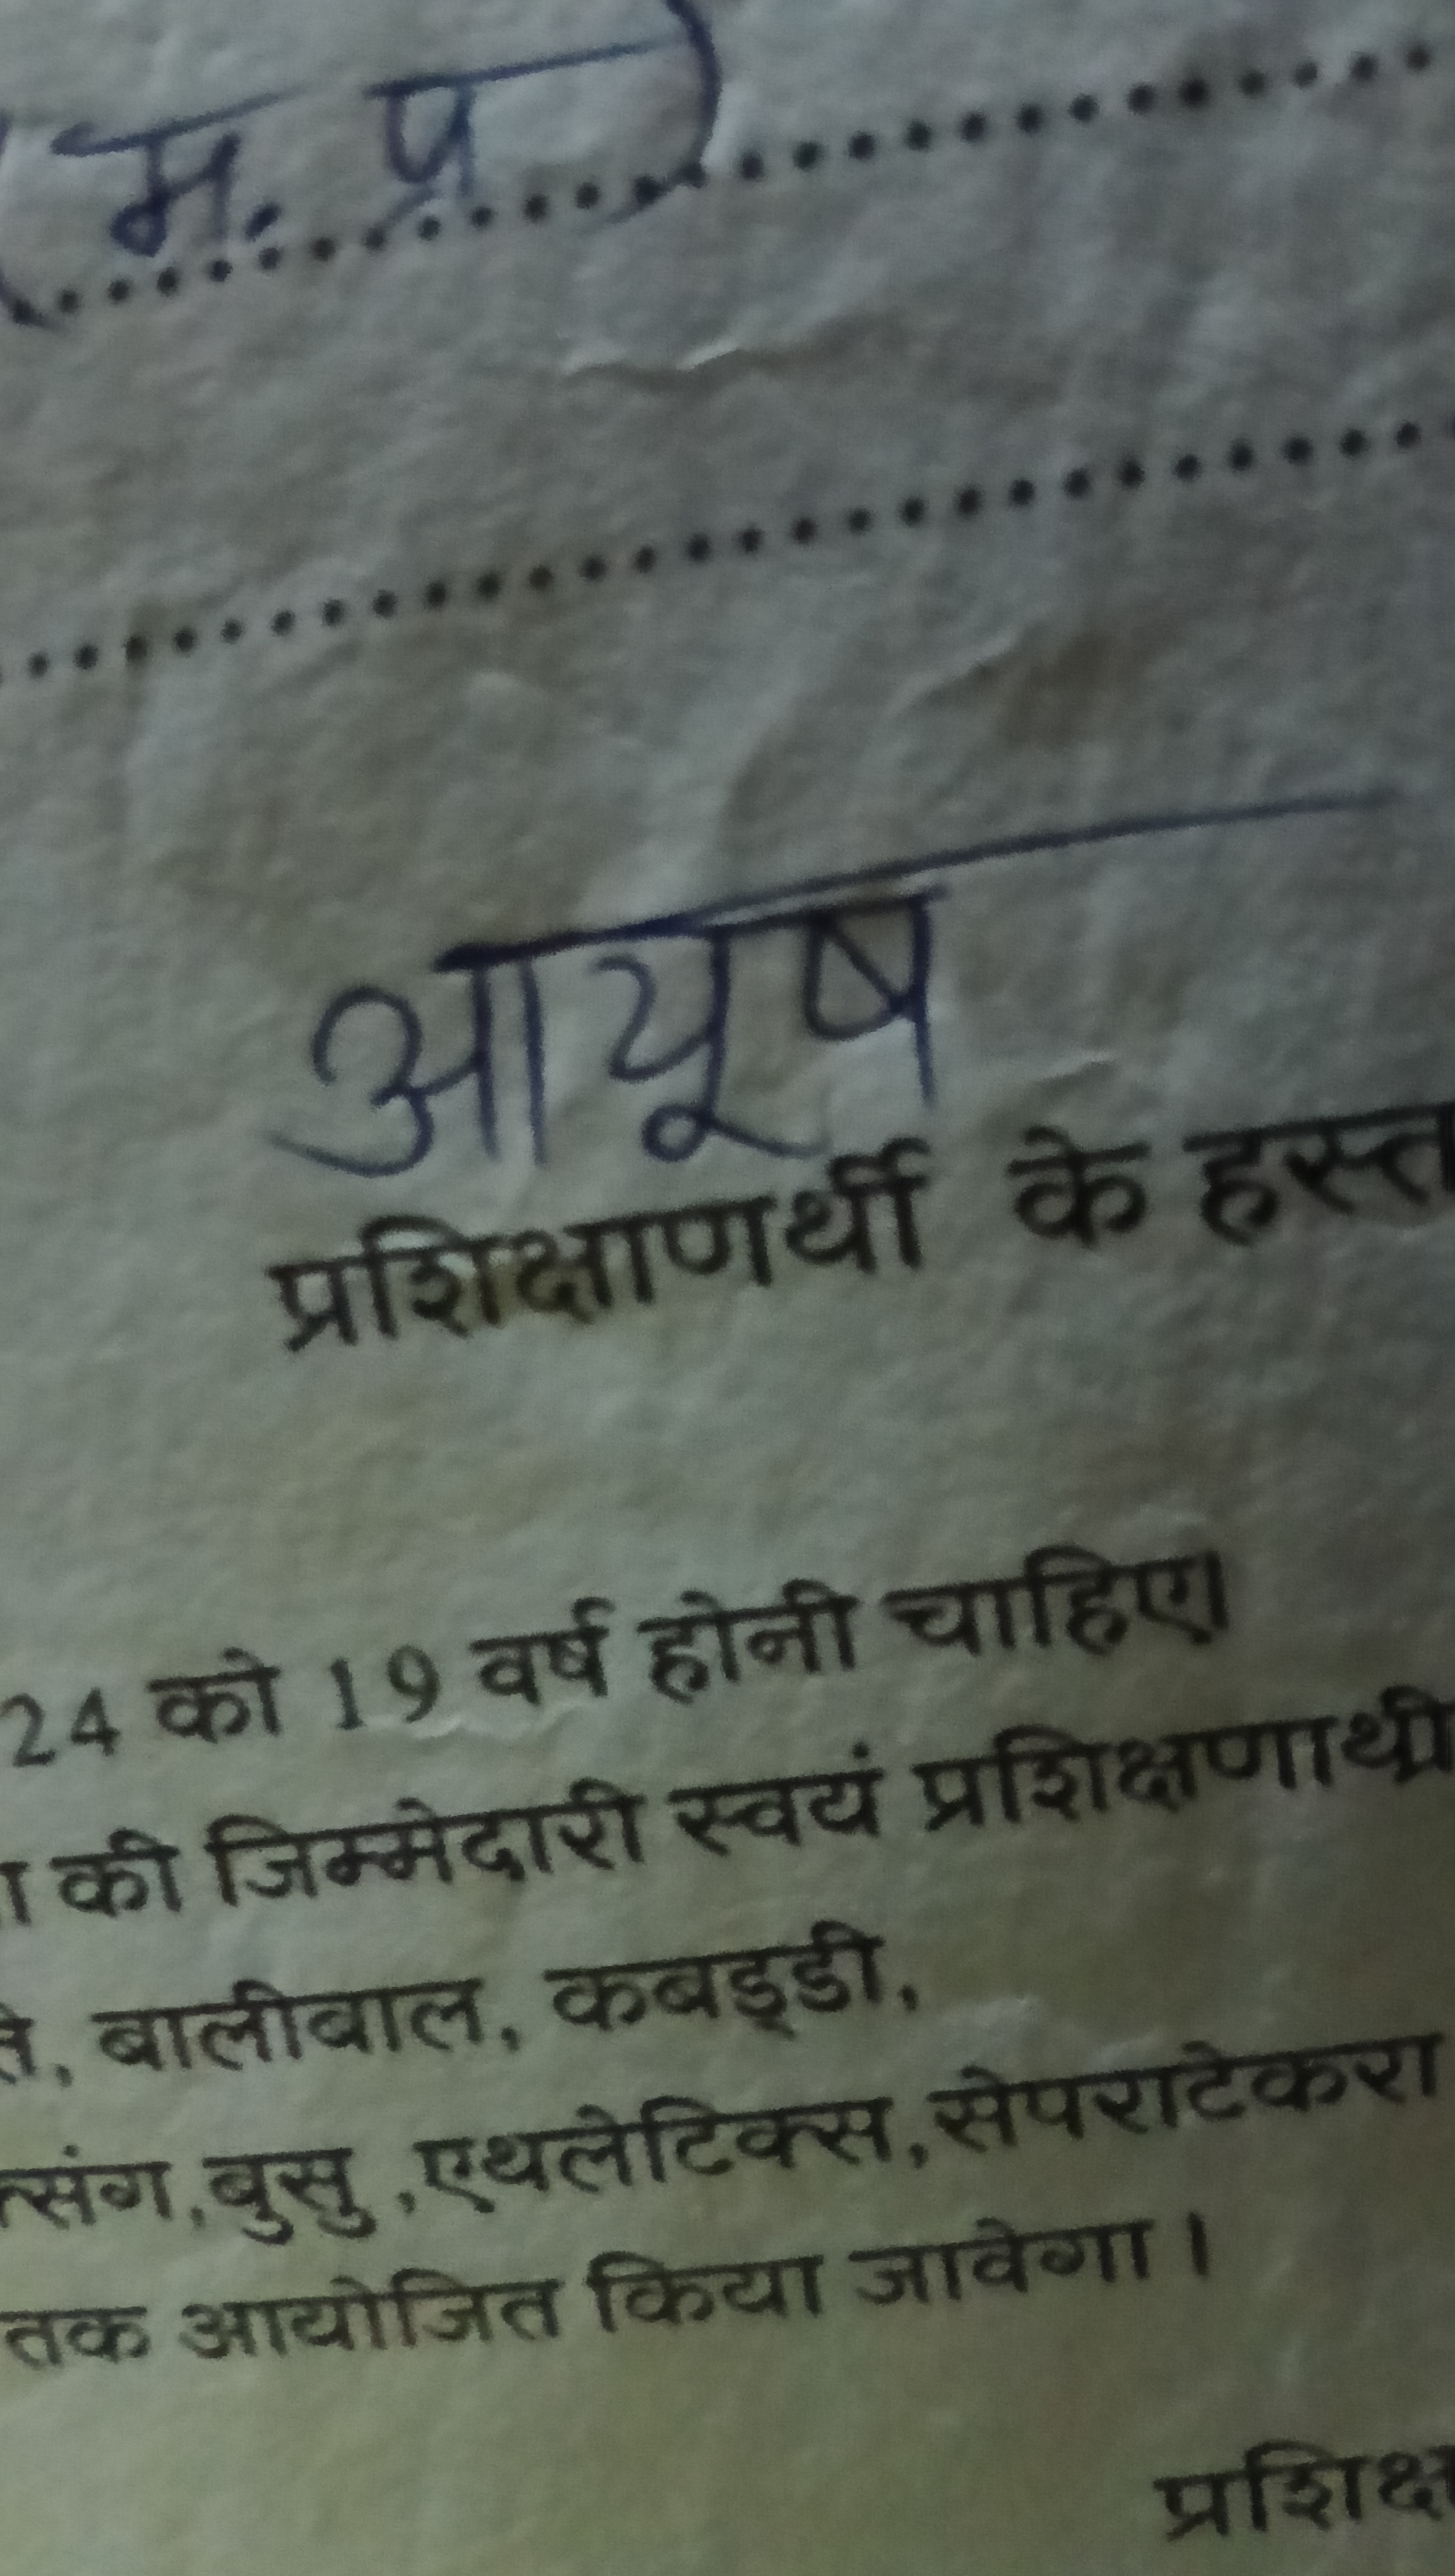 (म. प्र)
आयूष
प्रशिक्षाणर्थी के हस्त
24 को 19 वर्ष होनी चाहिए।
की जिम्मेदारी स्वयं प्रशिक्षणार्थी
, बालीबाल, कबड्डी,
संग, वुसु ,एथलेटिक्स,सेपराटेकरा
तक आयोजित किया जावेगा ।
प्रशिक्ष